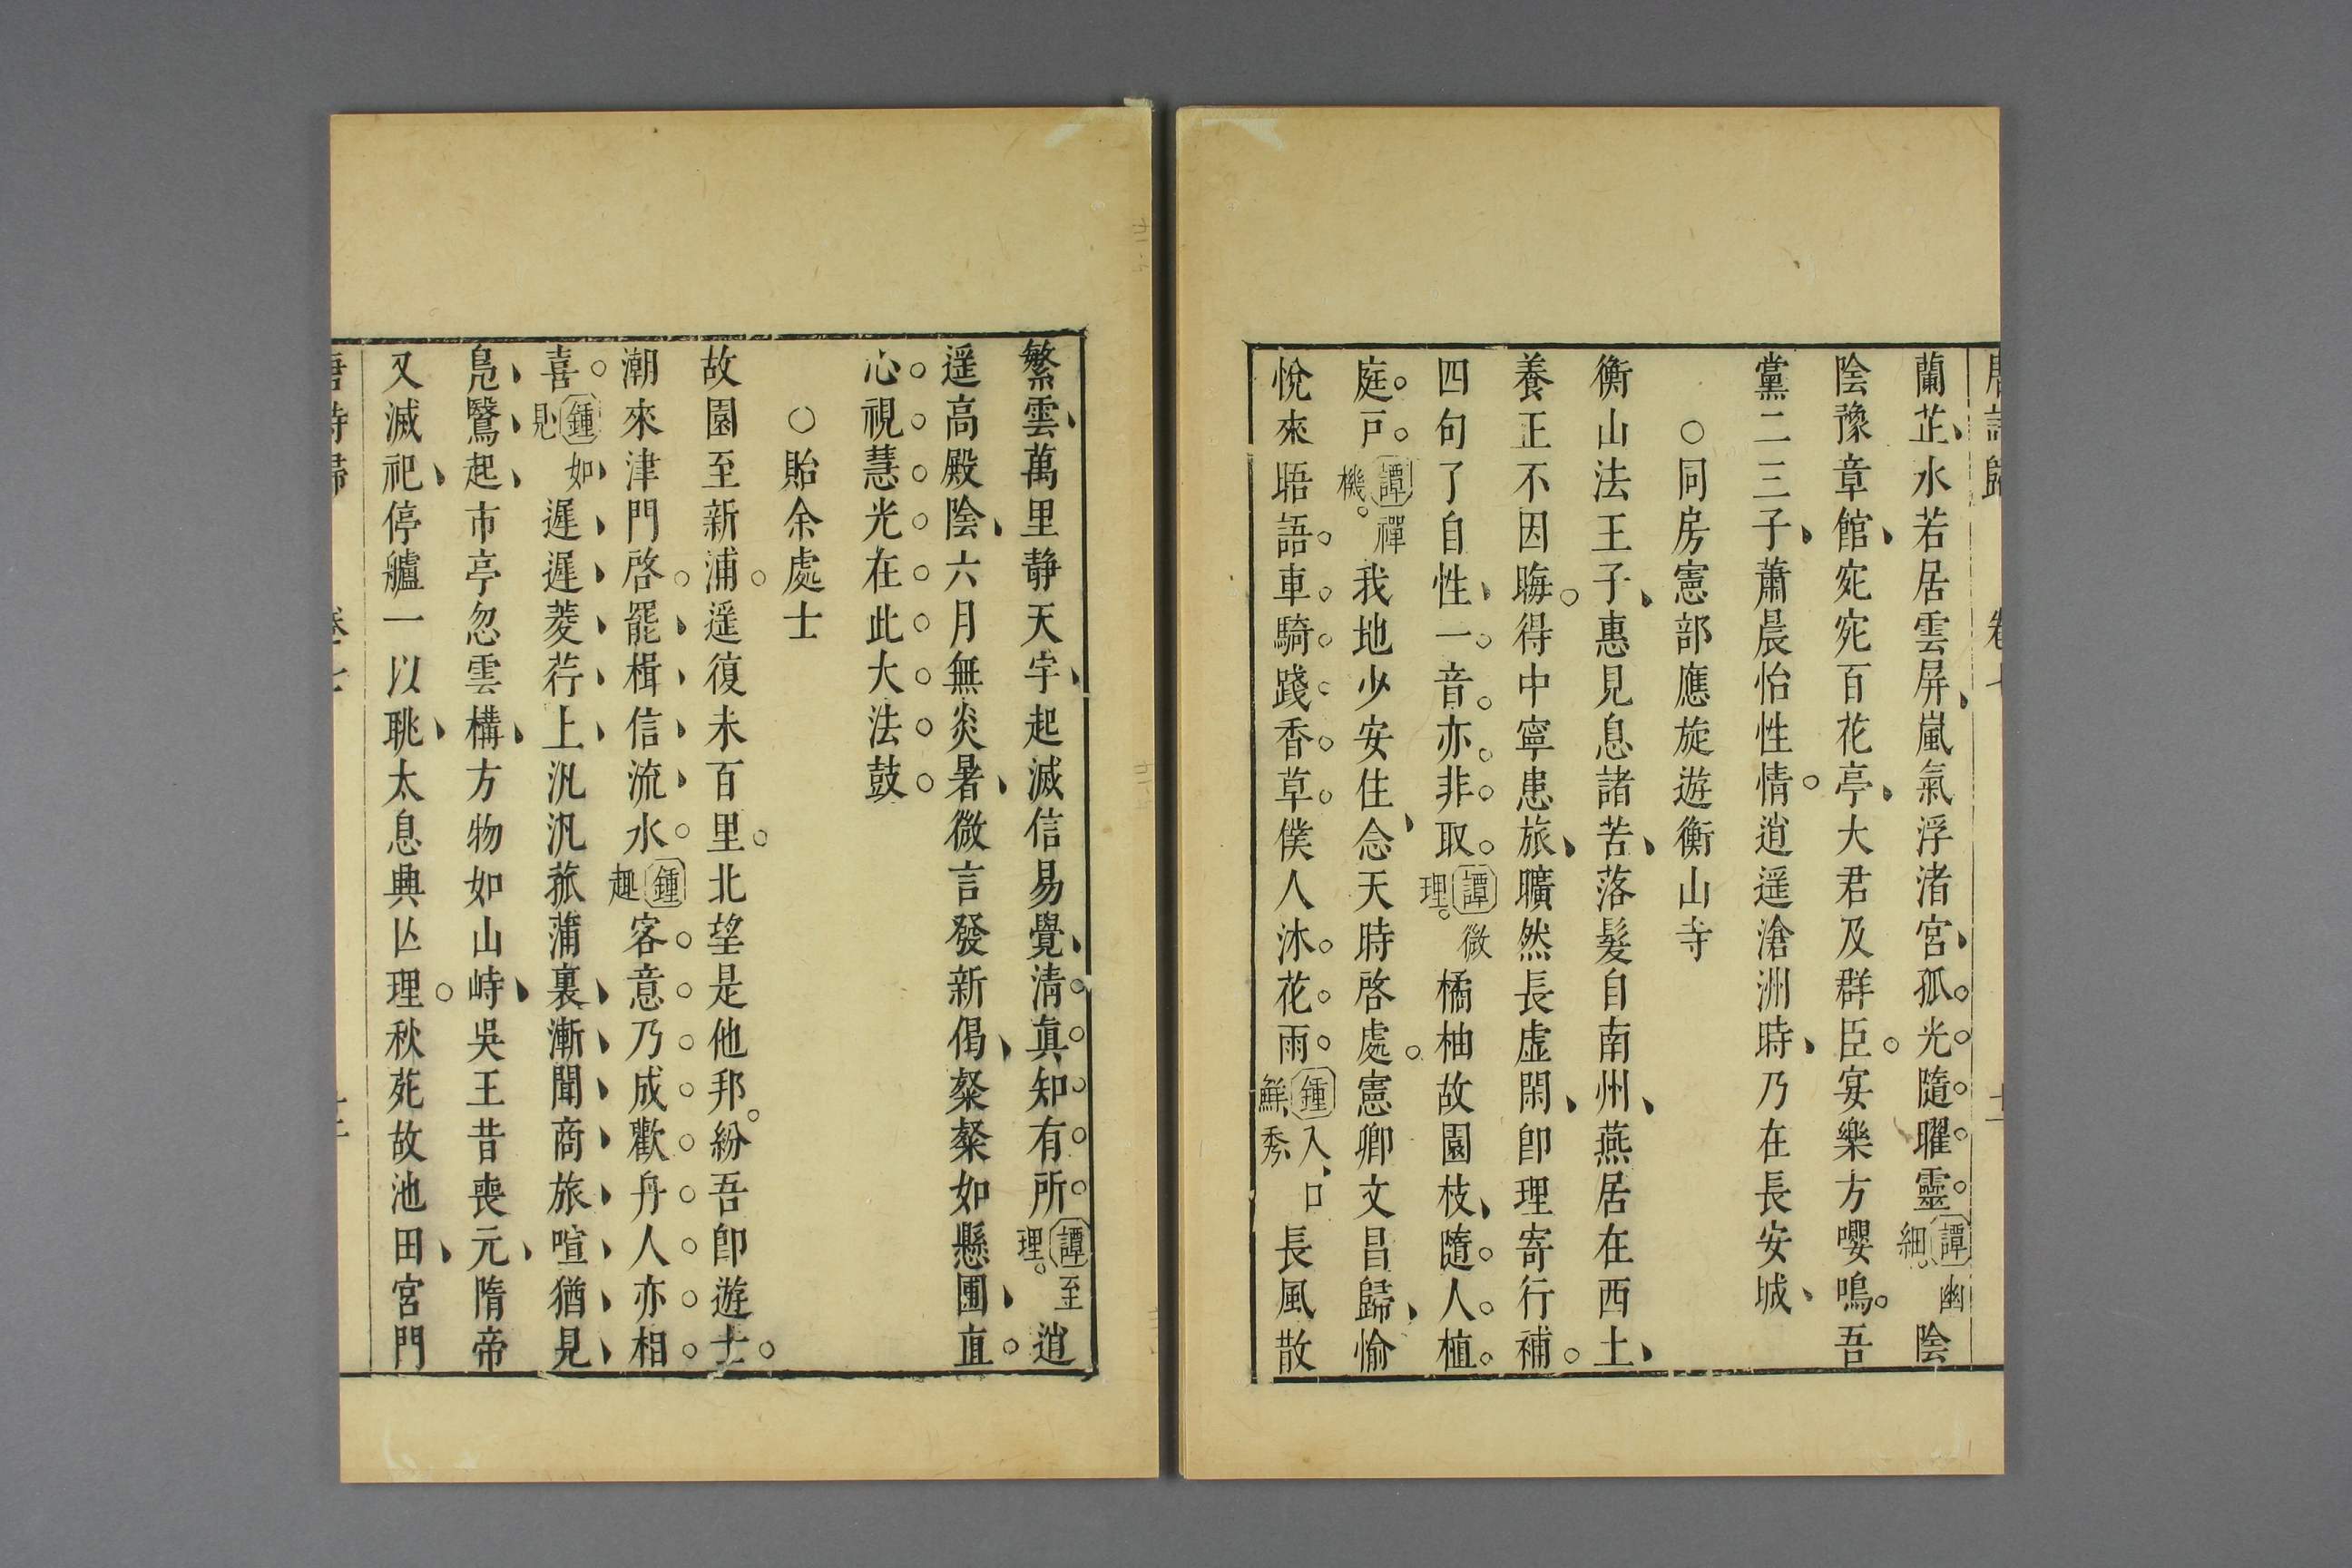 唐詩歸　卷七
蘭芷水若居雲屏嵐氣浮渚宮孤光隨曜靈譚幽細陰
陰豫章館宛宛百花亭大君及群臣宴樂方嚶鳴吾
黨二三子蕭晨怡性情逍遥滄洲時乃在長安城
○同房憲部應旋遊衡山寺
衡山法王子惠見息諸苦落髮自南州燕居在西土
養正不因晦得中寧患旅曠然長虛閑卽理寄行補
四句了自性一音亦非取譚微理橘柚故園枝隨人植
庭戶譚禪機我地少安住念天時啓處憲卿文昌歸愉
悅來晤語車騎踐香草僕人沐花雨鍾入口鮮秀長風散
繁雲萬里静天宇起滅信易覺清真知有所譚至理逍
遥高殿陰六月無炎暑微言發新偈粲粲如懸圃直
心視慧光在此大法鼓
○貽余處士
故園至新浦遥復未百里北望是他邦紛吾卽遊士
潮來津門啓罷楫信流水鍾趣客意乃成歡舟人亦相
喜鍾如見遲遲菱荇上汎汎菰蒲裏漸聞商旅喧猶見
鳧鷖起市亭忽雲構方物如山峙吳王昔喪元隋帝
又滅祀停艫一以眺太息興亾理秋苑故池田宮門
唐詩歸　卷七